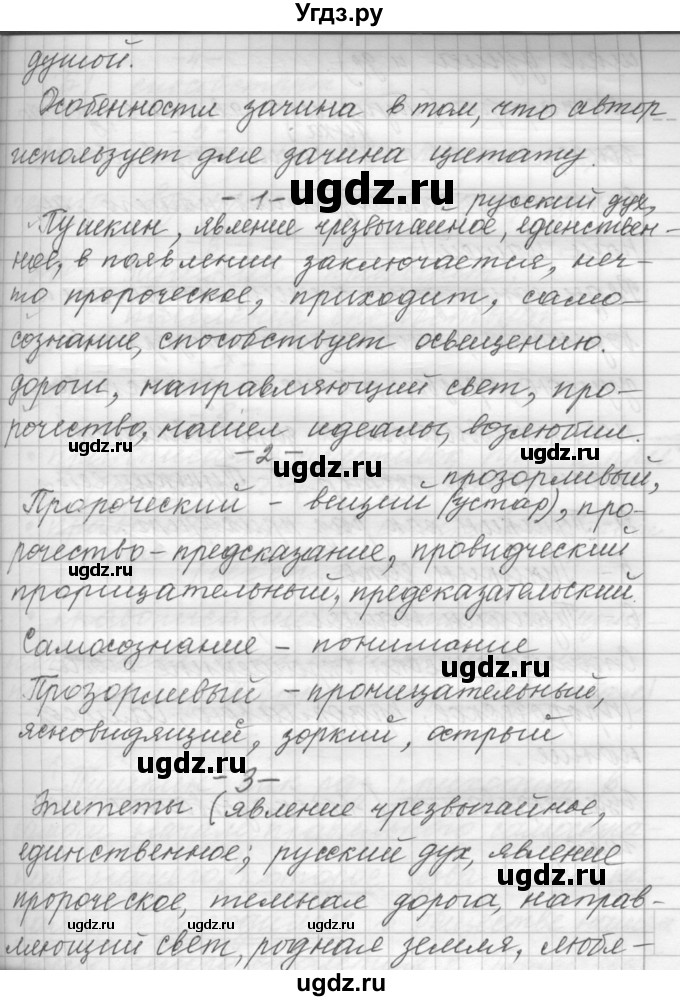 Угдз.ру
душой.
Особенности зачина в том, что автор
использует для зачина цитату.
ugdz.ru
- 1 - русский дух,
Пушкин, явление чрезвычайное, единствен-
ное, в появлении заключается, неч-
то пророческое, приходит, само-
сознание, способствует освещению.
ugdz.ru
дороги, направляющий свет, про-
рочество, нашел идеалы, возлюбил.
ugdz.ru
ugdz.ru
- 2 -
прозорливый,
Пророческий - вещий (устар), про-
рочество - предсказание, провидческий
ugdz.ru
прорицательный, предсказательский.
Самосознание - понимание
ugdz.ru
Прозорливый - проницательный,
ясновидящий, зоркий, острый
ugdz.ru
- 3 -
Эпитеты (явление чрезвычайное,
единственное; русский дух, явление
ugdz.ru
пророческое, темная дорога, направ-
ugdz.ru ugdz.ru ugdz.ru
ляющий свет, родная земля, любя-
ugdz.ru